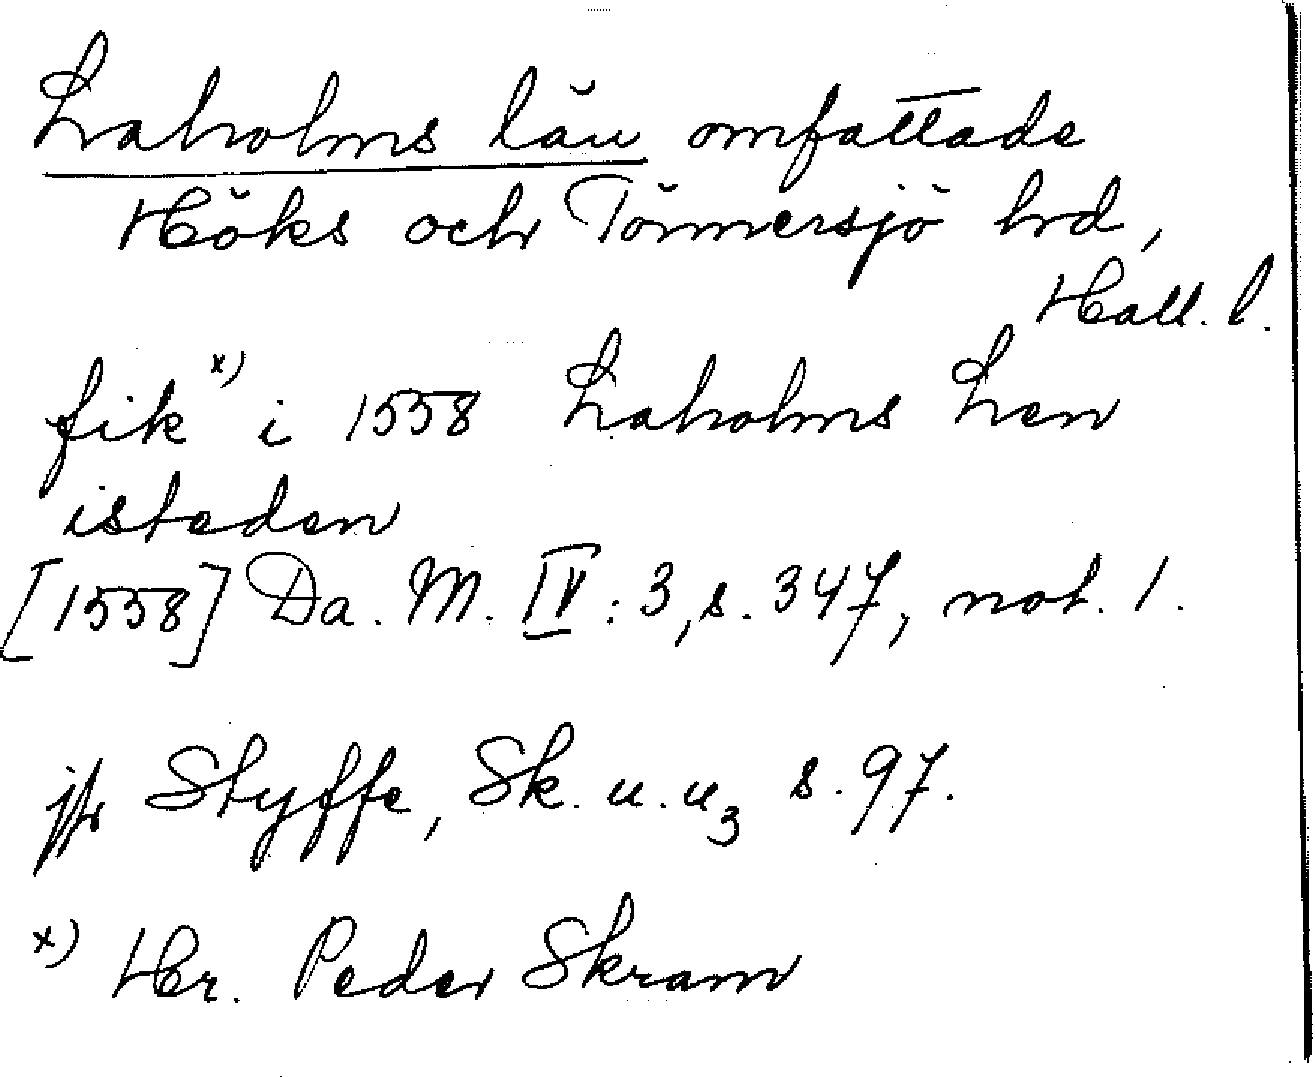 Laholms län omfattade
Höks och Tönnersjö hrd,
Hall. l.
fik x) i 1558 Laholms Len
isteden
[1558] Da. M. IV: 3, s. 347, not. 1.
jfr Styffe, Sk. u. u3 s. 97.
x) Hr. Peder Skram